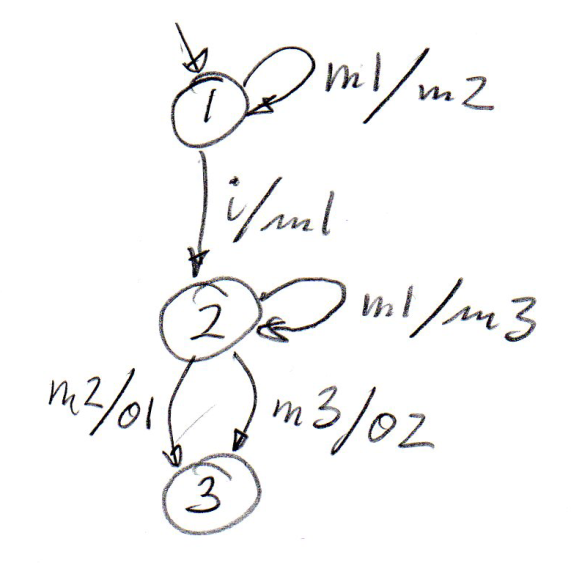 1
m1/m2
i/m1
2
m1/m3
m2/o1
m3/o2
3